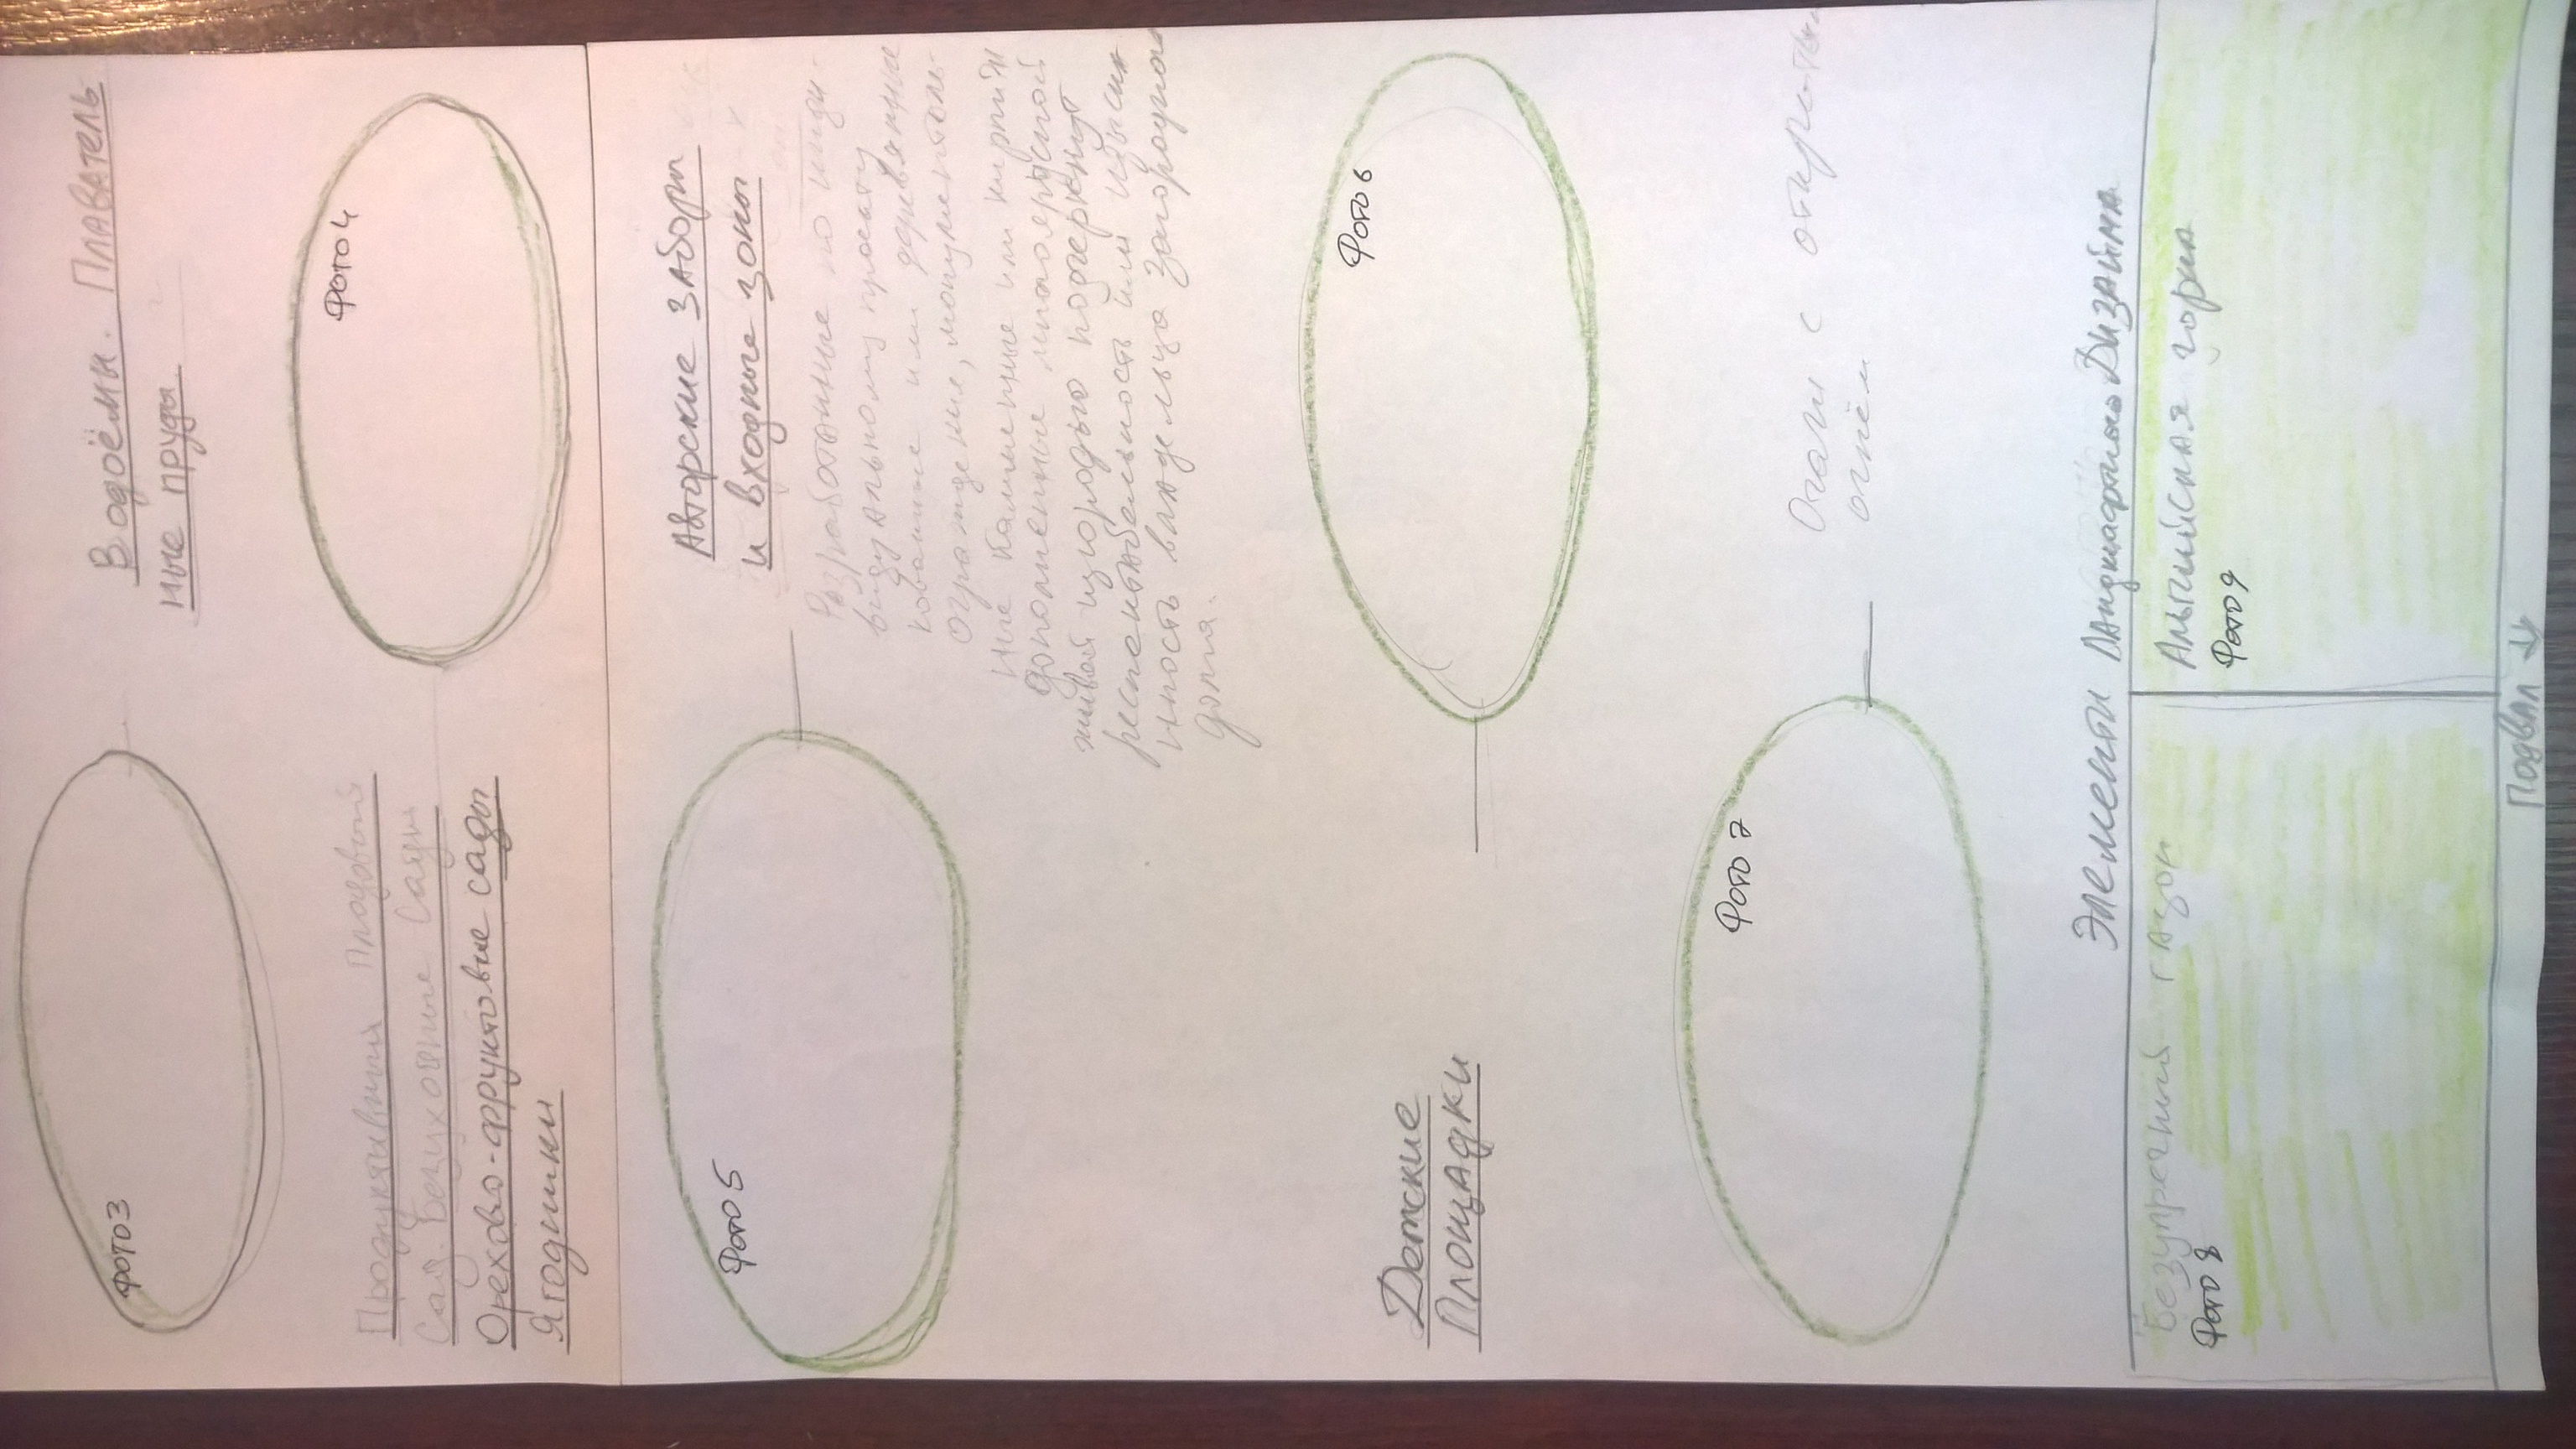 Водоёмы. Плаватель
ные пруды
Фото3
Фото4
Продуктивный Плодовый
Сад. Безуходные Сады
Орехово-фруктовые сады
Ягодники
Авторские заборы
и входные зоны
Разработанные по инди-
видуальному проекту
кованые или деревянные
ограждения, монументаль-
ные каменные или кирпич
дополненные миловрасной
живой изгородью подчеркнут
респектабельность или изыскан
нность владельца загородного
дома.
Фото5
Фото6
Детские
Площадки
Фото7
Очаги с открытым
огнём
Элементы Ландшафтного Дизайна
Безупречный газон
Фото8
Альпийская горка
Фото9
Подвал ↓